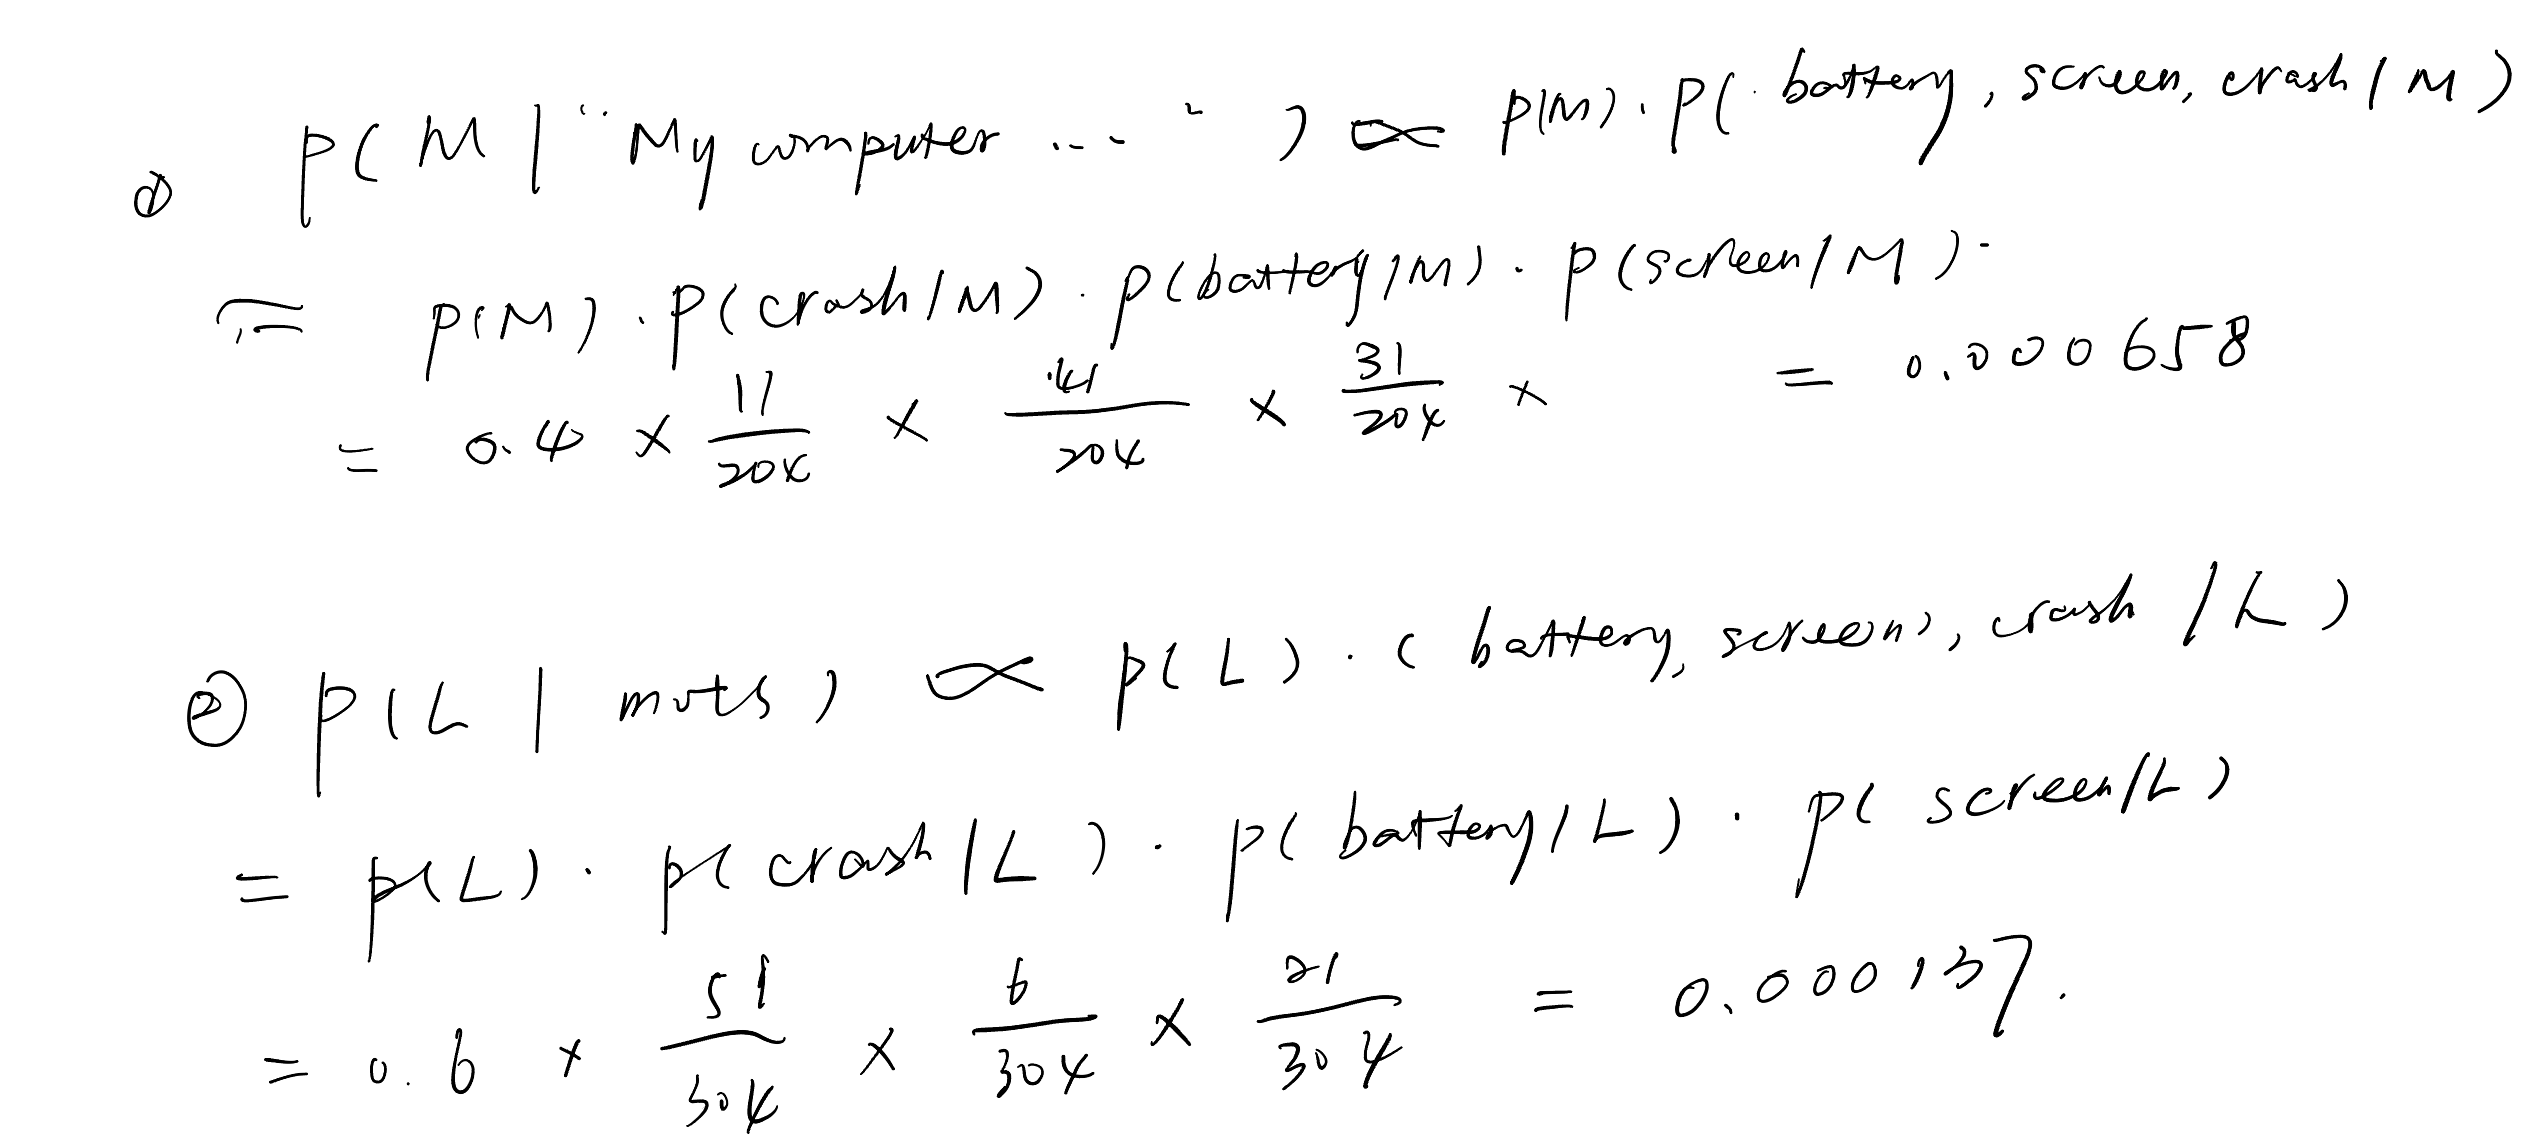 ① P(M | "My computer ..." ) ∝ P(M) · P( battery, screen, crash / M )
≈ P(M) · P(crash / M) · P(battery / M) · P(screen / M) ·
= 0.4 × 11/204 × 41/204 × 31/204 × = 0.000658
② P(L | ) ∝ P(L) · ( battery, screen, crash / L )
= P(L) · P( crash / L ) · P( battery / L ) · P( screen / L )
= 0.6 × 51/304 × 6/304 × 21/304 = 0.000137.